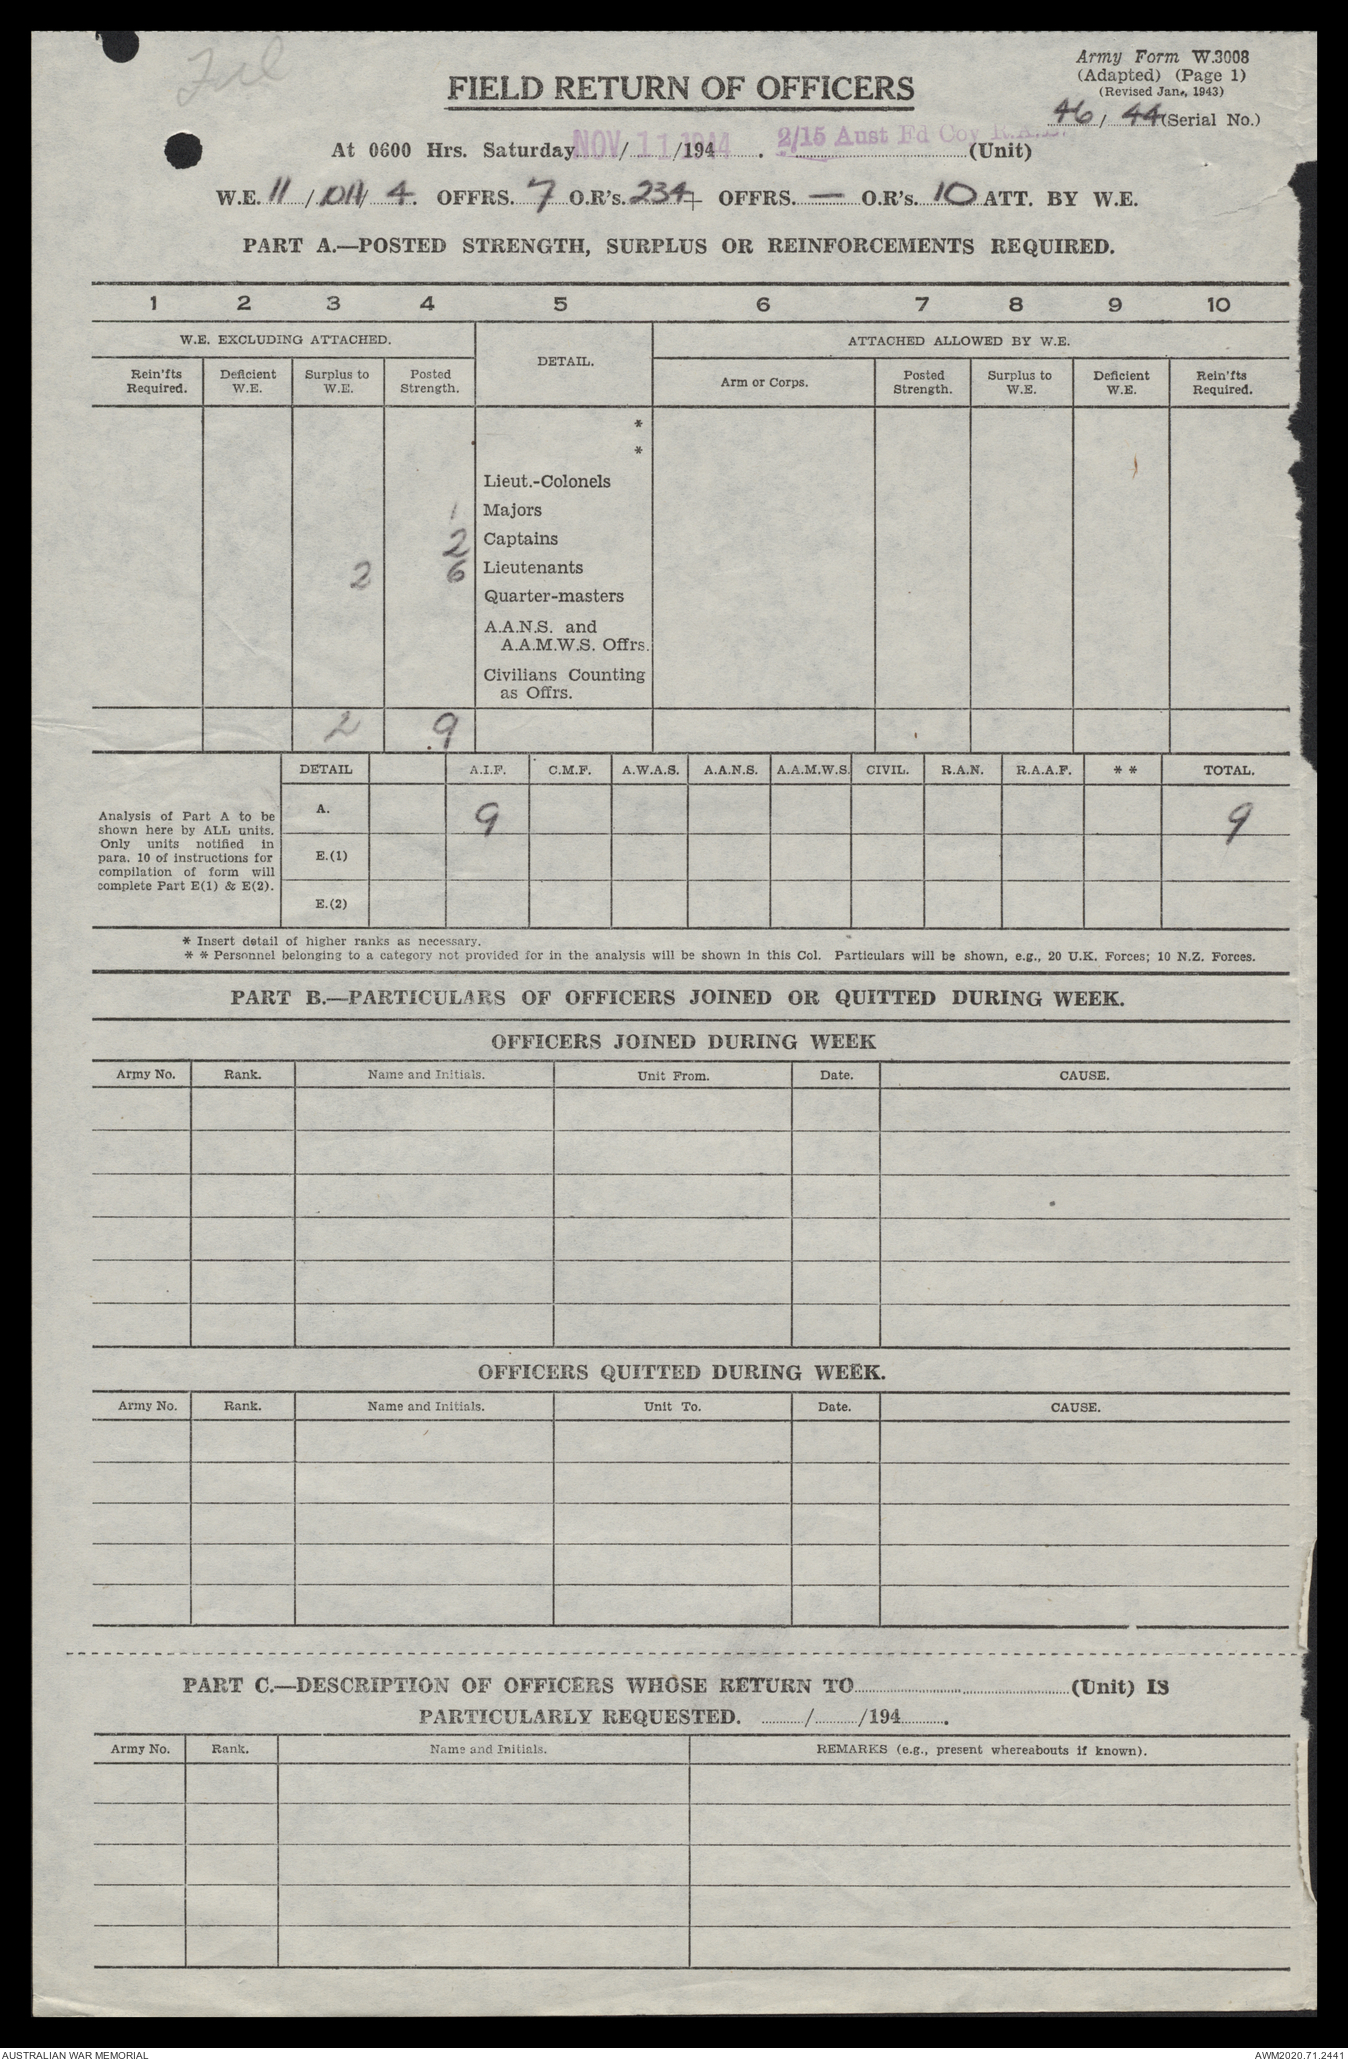 Army Form W.3008
(Adapted) (Page 1)
(Revised Jan., 1943)
46/44 (Serial No.)
FIELD RETURN OF OFFICERS
At 0600 Hrs. Saturday NOV 11 1944 / /194 . 2/15 Aust Fd Coy R.A.E. (Unit)
W.E. 11 / / 4. OFFRS. 7 O.R's. 234 OFFRS. — O.R's. 10 ATT. BY W.E.
PART A.—POSTED STRENGTH, SURPLUS OR REINFORCEMENTS REQUIRED.
1 2 3 4 5 6 7 8 9 10
W.E. EXCLUDING ATTACHED. DETAIL. ATTACHED ALLOWED BY W.E.
Rein'fts Required. Deficient W.E. Surplus to W.E. Posted Strength. Arm or Corps. Posted Strength. Surplus to W.E. Deficient W.E. Rein'fts Required.
*
*
Lieut.-Colonels
1 Majors
2 Captains
2 6 Lieutenants
Quarter-masters
A.A.N.S. and
A.A.M.W.S. Offrs.
Civilians Counting
as Offrs.
2 9
DETAIL A.I.F. C.M.F. A.W.A.S. A.A.N.S. A.A.M.W.S. CIVIL. R.A.N. R.A.A.F. * * TOTAL.
Analysis of Part A to be
shown here by ALL units.
Only units notified in
para. 10 of instructions for
compilation of form will
complete Part E(1) & E(2).
A. 9 9
E.(1)
E.(2)
* Insert detail of higher ranks as necessary.
* * Personnel belonging to a category not provided for in the analysis will be shown in this Col. Particulars will be shown, e.g., 20 U.K. Forces; 10 N.Z. Forces.
PART B.—PARTICULARS OF OFFICERS JOINED OR QUITTED DURING WEEK.
OFFICERS JOINED DURING WEEK
Army No. Rank. Name and Initials. Unit From. Date. CAUSE.
OFFICERS QUITTED DURING WEEK.
Army No. Rank. Name and Initials. Unit To. Date. CAUSE.
PART C.—DESCRIPTION OF OFFICERS WHOSE RETURN TO (Unit) IS
PARTICULARLY REQUESTED. / /194 .
Army No. Rank. Name and Initials. REMARKS (e.g., present whereabouts if known).
AUSTRALIAN WAR MEMORIAL AWM2020.71.2441